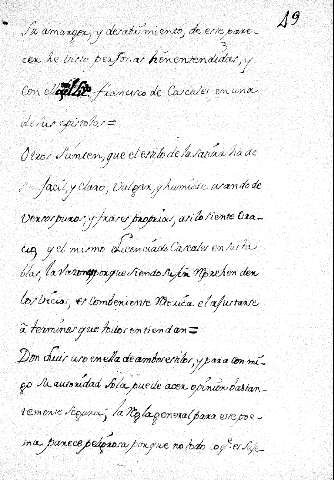 49
su amargor, y desabrimiento, de este pare-
cer he visto personas bien entendidas, y
con el Francisco de Cascales en una
de sus epistolas=
Otros sienten, que el estilo de la satira ha de
facil, y claro, vulgar, y humilde usando de
versos puros, y frases proprias, asi lo siente Ora-
cio, y el mismo Licenciado Cascales en su ta
blas, la razon porque siendo su fin reprehender
los vicios, es combeniente el ajustarse
à terminos que todos entiendan=
Don Luis uso en ella de ambos estilos, y para con mi-
go su autoridad sola puede acer opinion bastan-
temente segura; la regla general para este poe-
ma parece peligrosa porque no todo lo q.e es